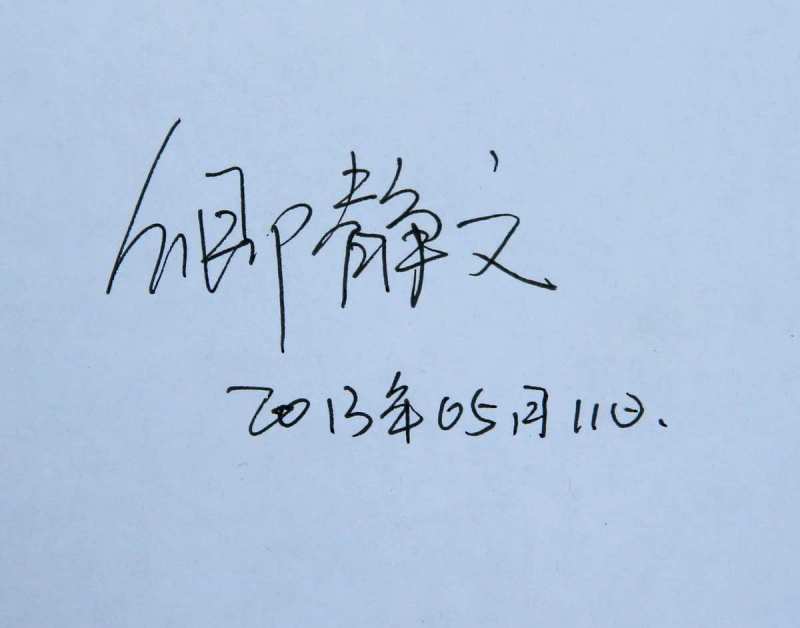 卿静文
2013年05月11日.